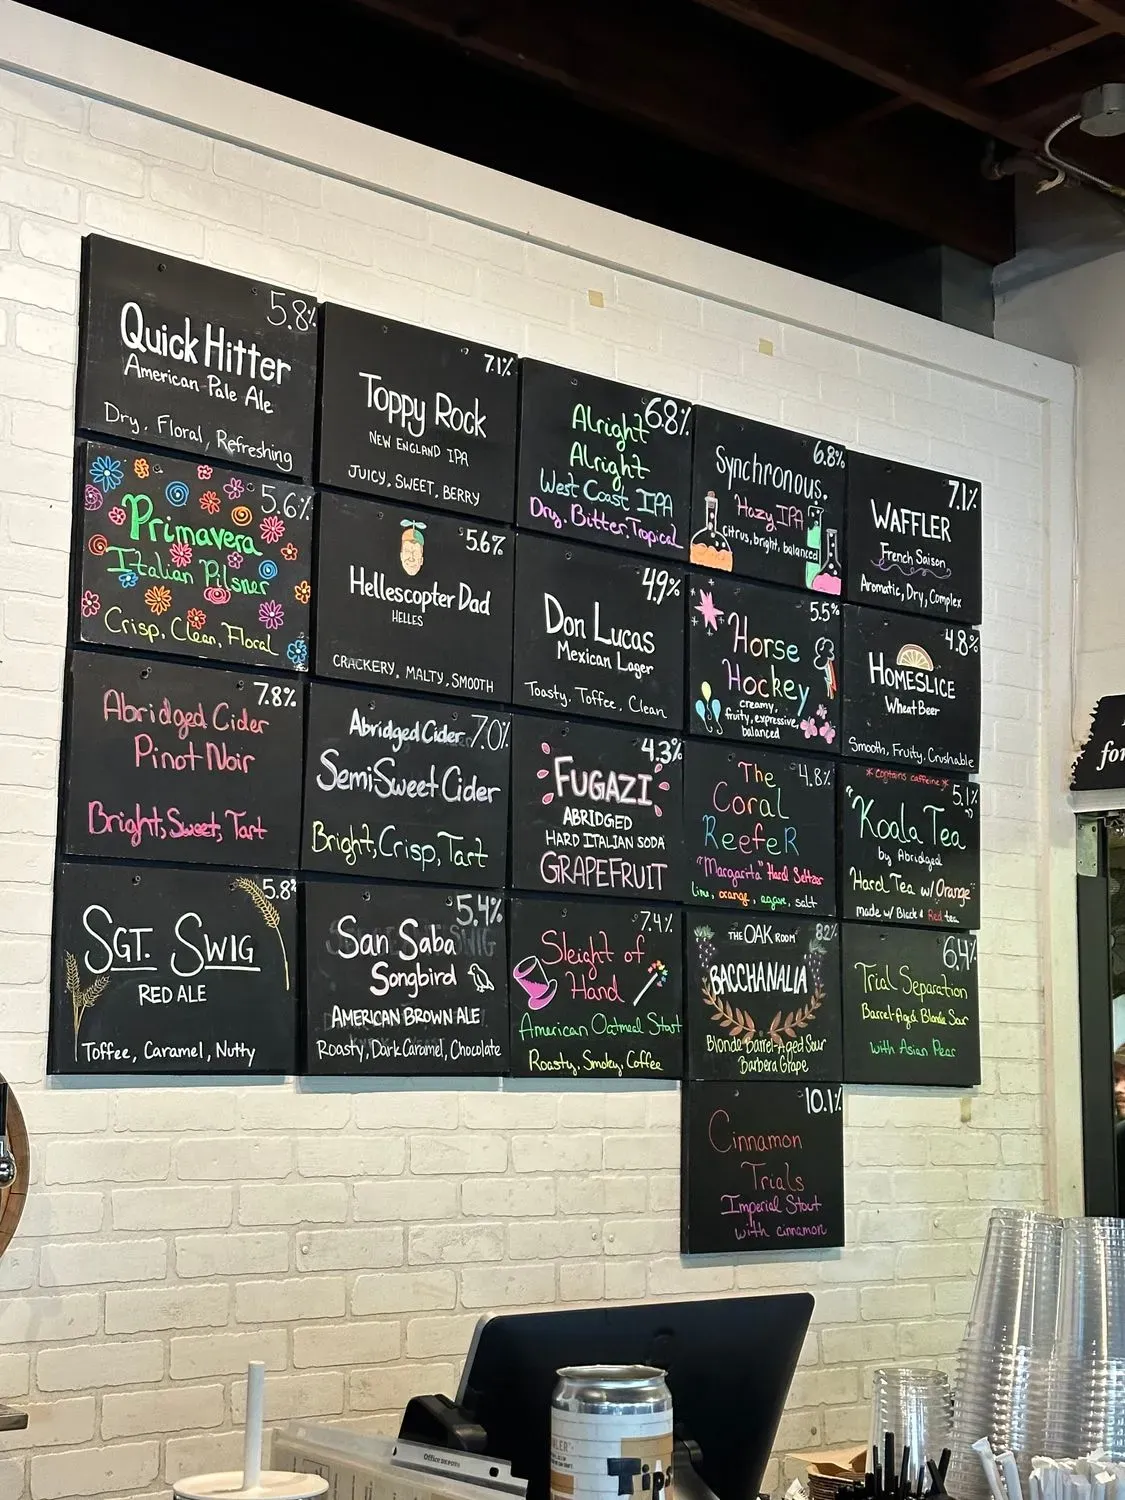 5.8%
Quick Hitter
American Pale Ale
Dry, Floral, Refreshing
7.1%
Toppy Rock
NEW ENGLAND IPA
JUICY, SWEET, BERRY
6.8%
Alright
Alright
West Coast IPA
Dry, Bitter, Tropical
6.8%
Synchronous.
Hazy IPA
citrus, bright, balanced
7.1%
WAFFLER
French Saison
Aromatic, Dry, Complex
5.6%
Primavera
Italian Pilsner
Crisp, Clean, Floral
5.6%
Hellescopter Dad
HELLES
CRACKERY, MALTY, SMOOTH
4.9%
Don Lucas
Mexican Lager
Toasty, Toffee, Clean
5.5%
Horse
Hockey
creamy,
fruity, expressive,
balanced
4.8%
HOMESLICE
Wheat Beer
Smooth, Fruity, Crushable
7.8%
Abridged Cider
Pinot Noir
Bright, Sweet, Tart
Abridged Cider 7.0%
SemiSweet Cider
Bright, Crisp, Tart
4.3%
FUGAZI
ABRIDGED
HARD ITALIAN SODA
GRAPEFRUIT
The 4.8%
Coral
ReefeR
"Margarita" Hard Seltzer
lime, orange, agave, salt
* contains caffeine *
5.1%
"Koala Tea
by Abridged
Hard Tea w/ Orange
made w/ Black & Red tea
5.8%
SGT. SWIG
RED ALE
Toffee, Caramel, Nutty
5.4%
San Saba
Songbird
AMERICAN BROWN ALE
Roasty, Dark Caramel, Chocolate
7.4%
Sleight of
Hand
American Oatmeal Stout
Roasty, Smoky, Coffee
THE OAK ROOM 8.2%
BACCHANALIA
Blonde Barrel-Aged Sour
Barbera Grape
6.4%
Trial Separation
Barrel-Aged Blonde Sour
with Asian Pear
10.1%
Cinnamon
Trials
Imperial Stout
with cinnamon
for
Office DEPOT